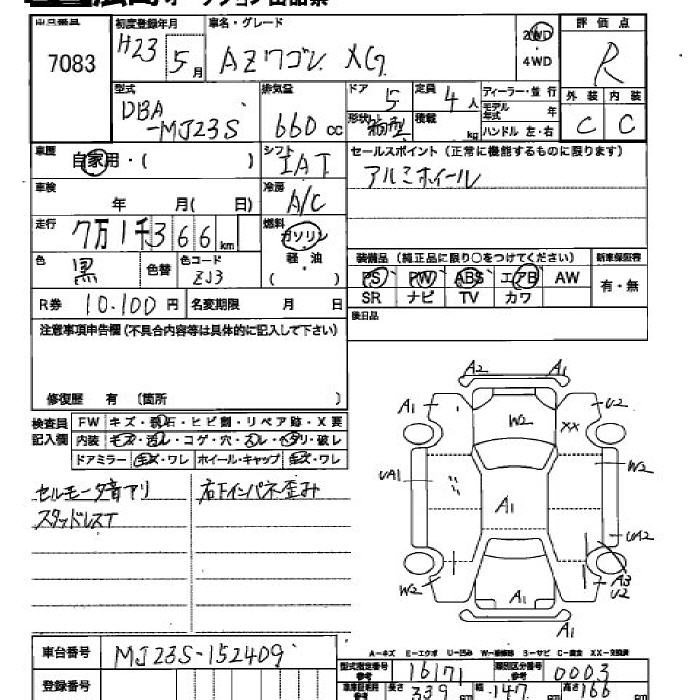 オークション出品票
出品番号 7083
初度登録年月 H23 5月
車名・グレード AZワゴン XG
2WD・4WD
評価点 R
外装 C 内装 C
型式 DBA-MJ23S
排気量 660cc
ドア 5
定員 4人
ディーラー・並行
モデル年式 年
形状 箱型
積載 kg
ハンドル 左・右
車歴 自家用・( )
シフト IAT
セールスポイント(正常に機能するものに限ります)
アルミホイール
車検 年 月( 日)
冷房 A/C
走行 7万1千366km
燃料 ガソリン
軽・油
( )
色 黒 色替
色コード ZJ3
装備品(純正品に限り○をつけてください)
新車保証書 有・無
PS PW ABS エアB AW
SR ナビ TV カワ
R券 10.100円
名変期限 月 日
後日品
注意事項申告欄(不具合内容等は具体的に記入して下さい)
修復歴 有 〔箇所 〕
検査員記入欄
FW キズ・飛石・ヒビ割・リペア跡・X要
内装 キズ・汚レ・コゲ・穴・スレ・ヘタリ・破レ
ドアミラー キズ・ワレ ホイール・キャップ キズ・ワレ
セルモータ音アリ
スタッドレスT
右下インパネ歪み
A2 A1
A1 U2
W2 XX
UA1 W2
A1
UA2
W2 A3
U2
A1 A1
A-キズ E-エクボ U-凹み W-補修跡 S-サビ C-腐食 XX-交換済
車台番号 MJ23S-152409
登録番号
型式指定番号 参考 16171
類別区分番号 参考 0003
車検証寸法 参考 長さ 339cm 幅 147cm 高さ 166cm